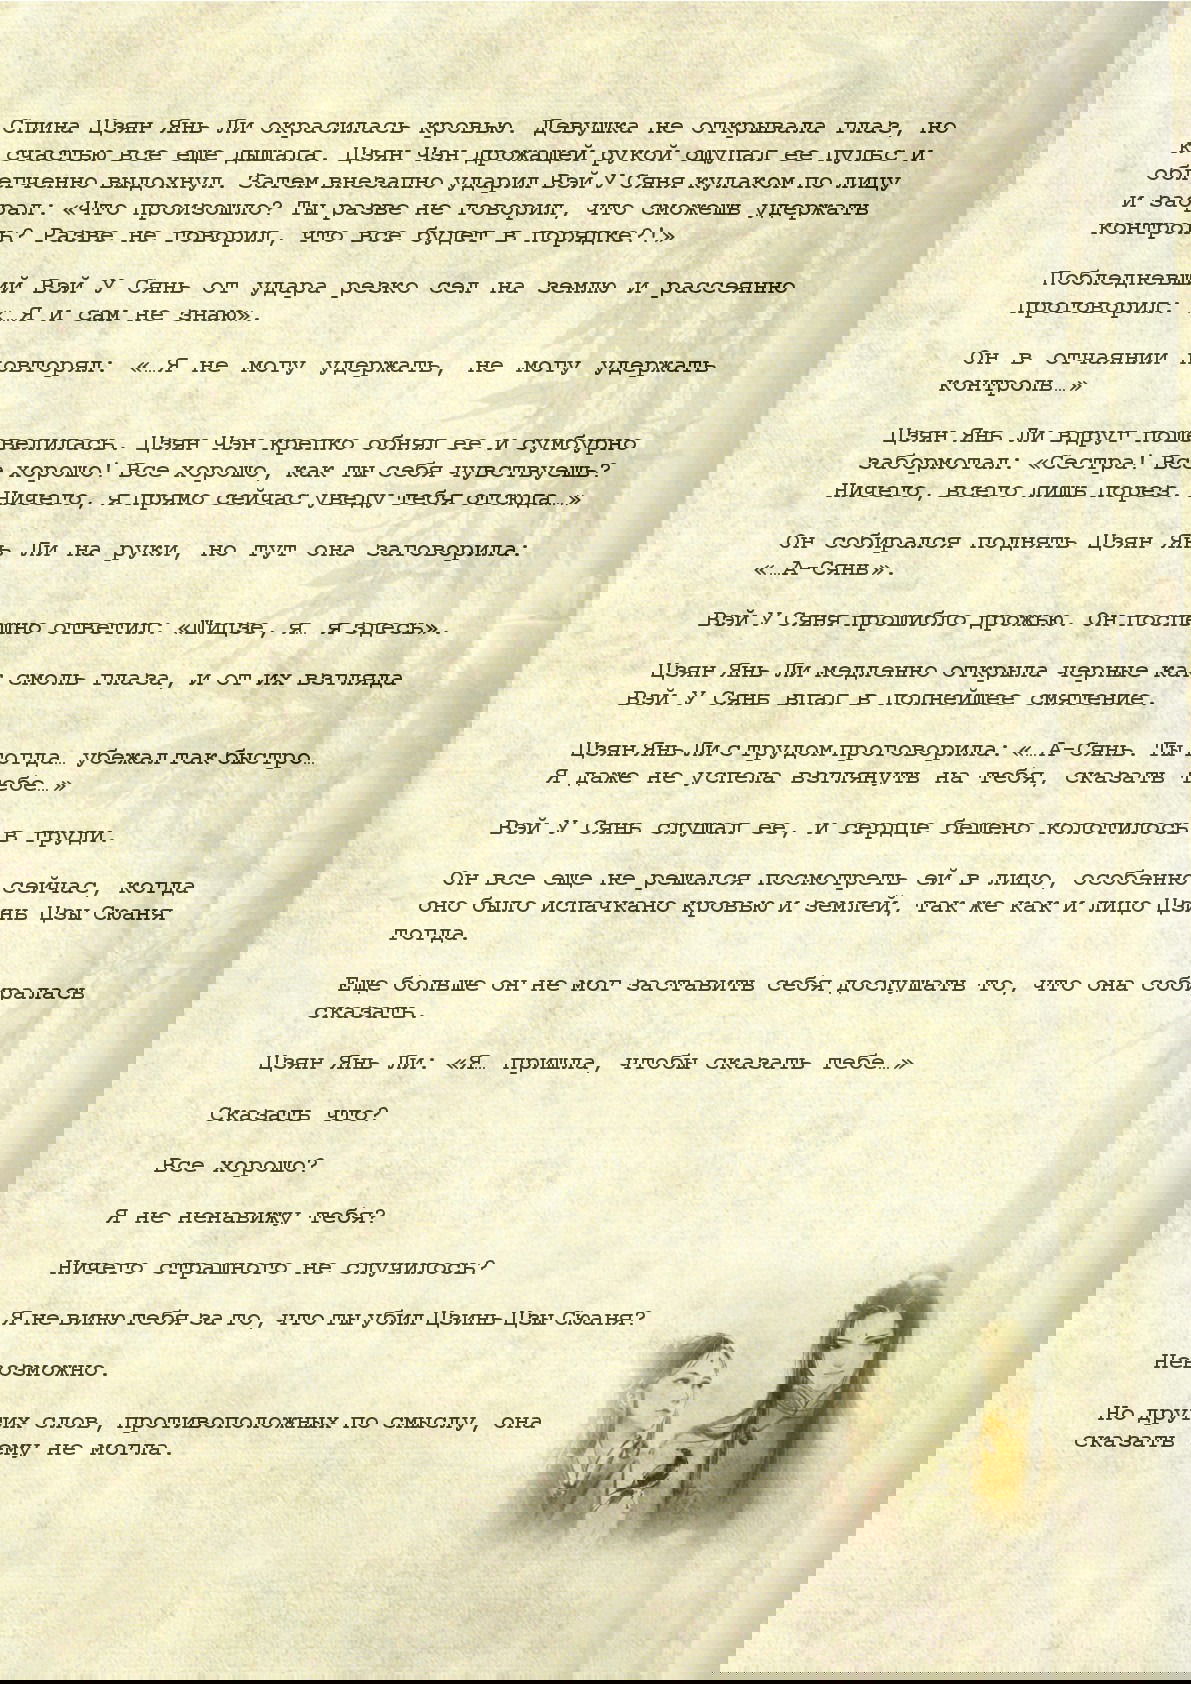 Спина Цзян Янь Ли окрасилась кровью. Девушка не открывала глаз, но
к счастью все еще дышала. Цзян Чэн дрожащей рукой ощупал ее пульс и
облегченно выдохнул. Затем внезапно ударил Вэй У Сяня кулаком по лицу
и заорал: «Что произошло? Ты разве не говорил, что сможешь удержать
контроль? Разве не говорил, что все будет в порядке?!»
Побледневший Вэй У Сянь от удара резко сел на землю и рассеянно
проговорил: «…Я и сам не знаю».
Он в отчаянии повторял: «…Я не могу удержать, не могу удержать
контроль…»
Цзян Янь Ли вдруг пошевелилась. Цзян Чэн крепко обнял ее и сумбурно
забормотал: «Сестра! Все хорошо! Все хорошо, как ты себя чувствуешь?
Ничего, всего лишь порез. Ничего, я прямо сейчас уведу тебя отсюда…»
Он собирался поднять Цзян Янь Ли на руки, но тут она заговорила:
«…А-Сянь».
Вэй У Сяня прошибло дрожью. Он поспешно ответил: «Шицзе, я… я здесь».
Цзян Янь Ли медленно открыла черные как смоль глаза, и от их взгляда
Вэй У Сянь впал в полнейшее смятение.
Цзян Янь Ли с трудом проговорила: «…А-Сянь. Ты тогда… убежал так быстро…
Я даже не успела взглянуть на тебя, сказать тебе…»
Вэй У Сянь слушал ее, и сердце бешено колотилось в груди.
Он все еще не решался посмотреть ей в лицо, особенно сейчас, когда
оно было испачкано кровью и землей, так же как и лицо Цзинь Цзы Сюаня
тогда.
Еще больше он не мог заставить себя дослушать то, что она собиралась
сказать.
Цзян Янь Ли: «Я… пришла, чтобы сказать тебе…»
Сказать что?
Все хорошо?
Я не ненавижу тебя?
Ничего страшного не случилось?
Я не виню тебя за то, что ты убил Цзинь Цзы Сюаня?
Невозможно.
Но других слов, противоположных по смыслу, она
сказать ему не могла.